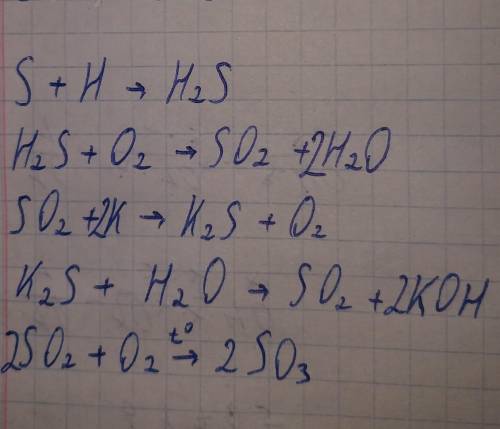 S + H → H₂S
H₂S + O₂ → SO₂ + 2H₂O
SO₂ + 2K → K₂S + O₂
K₂S + H₂O → SO₂ + 2KOH
2SO₂ + O₂ t°→ 2SO₃